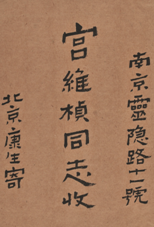 南京靈隱路十一號
宫維楨同志收
北京康生寄